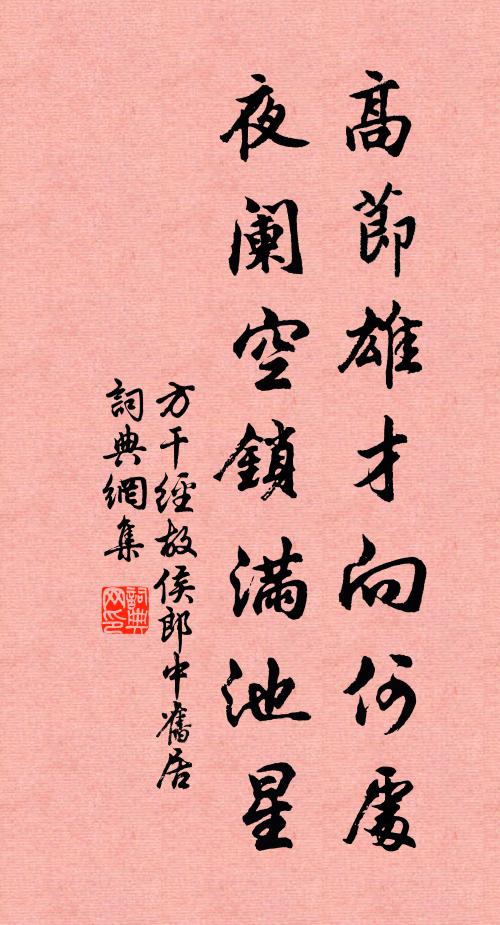 高節雄才向何處
夜阑空鎖满池星
方干經故侯郎中舊居
詞典網集
詞典
网印